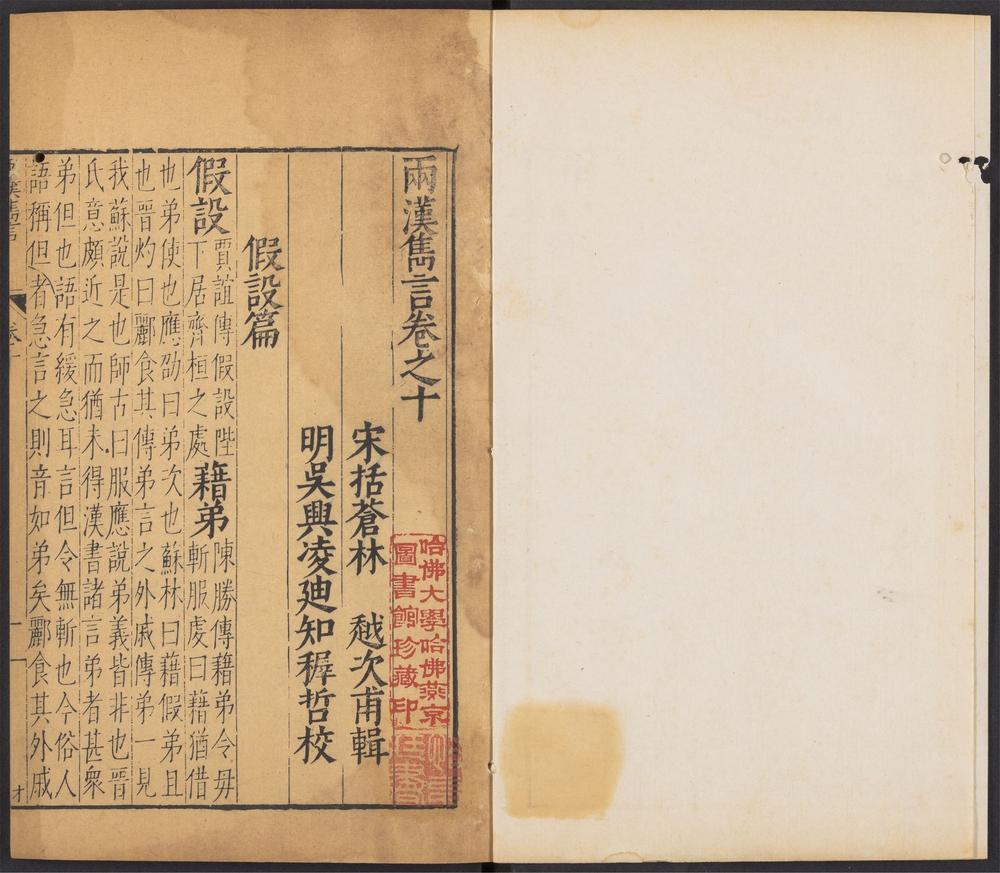 兩漢雋言卷之十
宋括蒼林　越次甫輯
明吳興凌迪知穉哲校
假設篇
假設
賈誼傳假設陛
下居齊桓之處
藉弟
陳勝傳藉弟令毋
斬服虔曰藉猶借
也弟使也應劭曰弟次也蘇林曰藉假弟且
也晉灼曰酈食其傳弟言之外戚傳弟一見
我蘇說是也師古曰服應說弟義皆非也晉
氏意頗近之而猶未得漢書諸言弟者甚衆
弟但也語有緩急耳言但令無斬也今俗人
語稱但者急言之則音如弟矣酈食其外戚
哈佛大學哈佛燕京
圖書館珍藏印